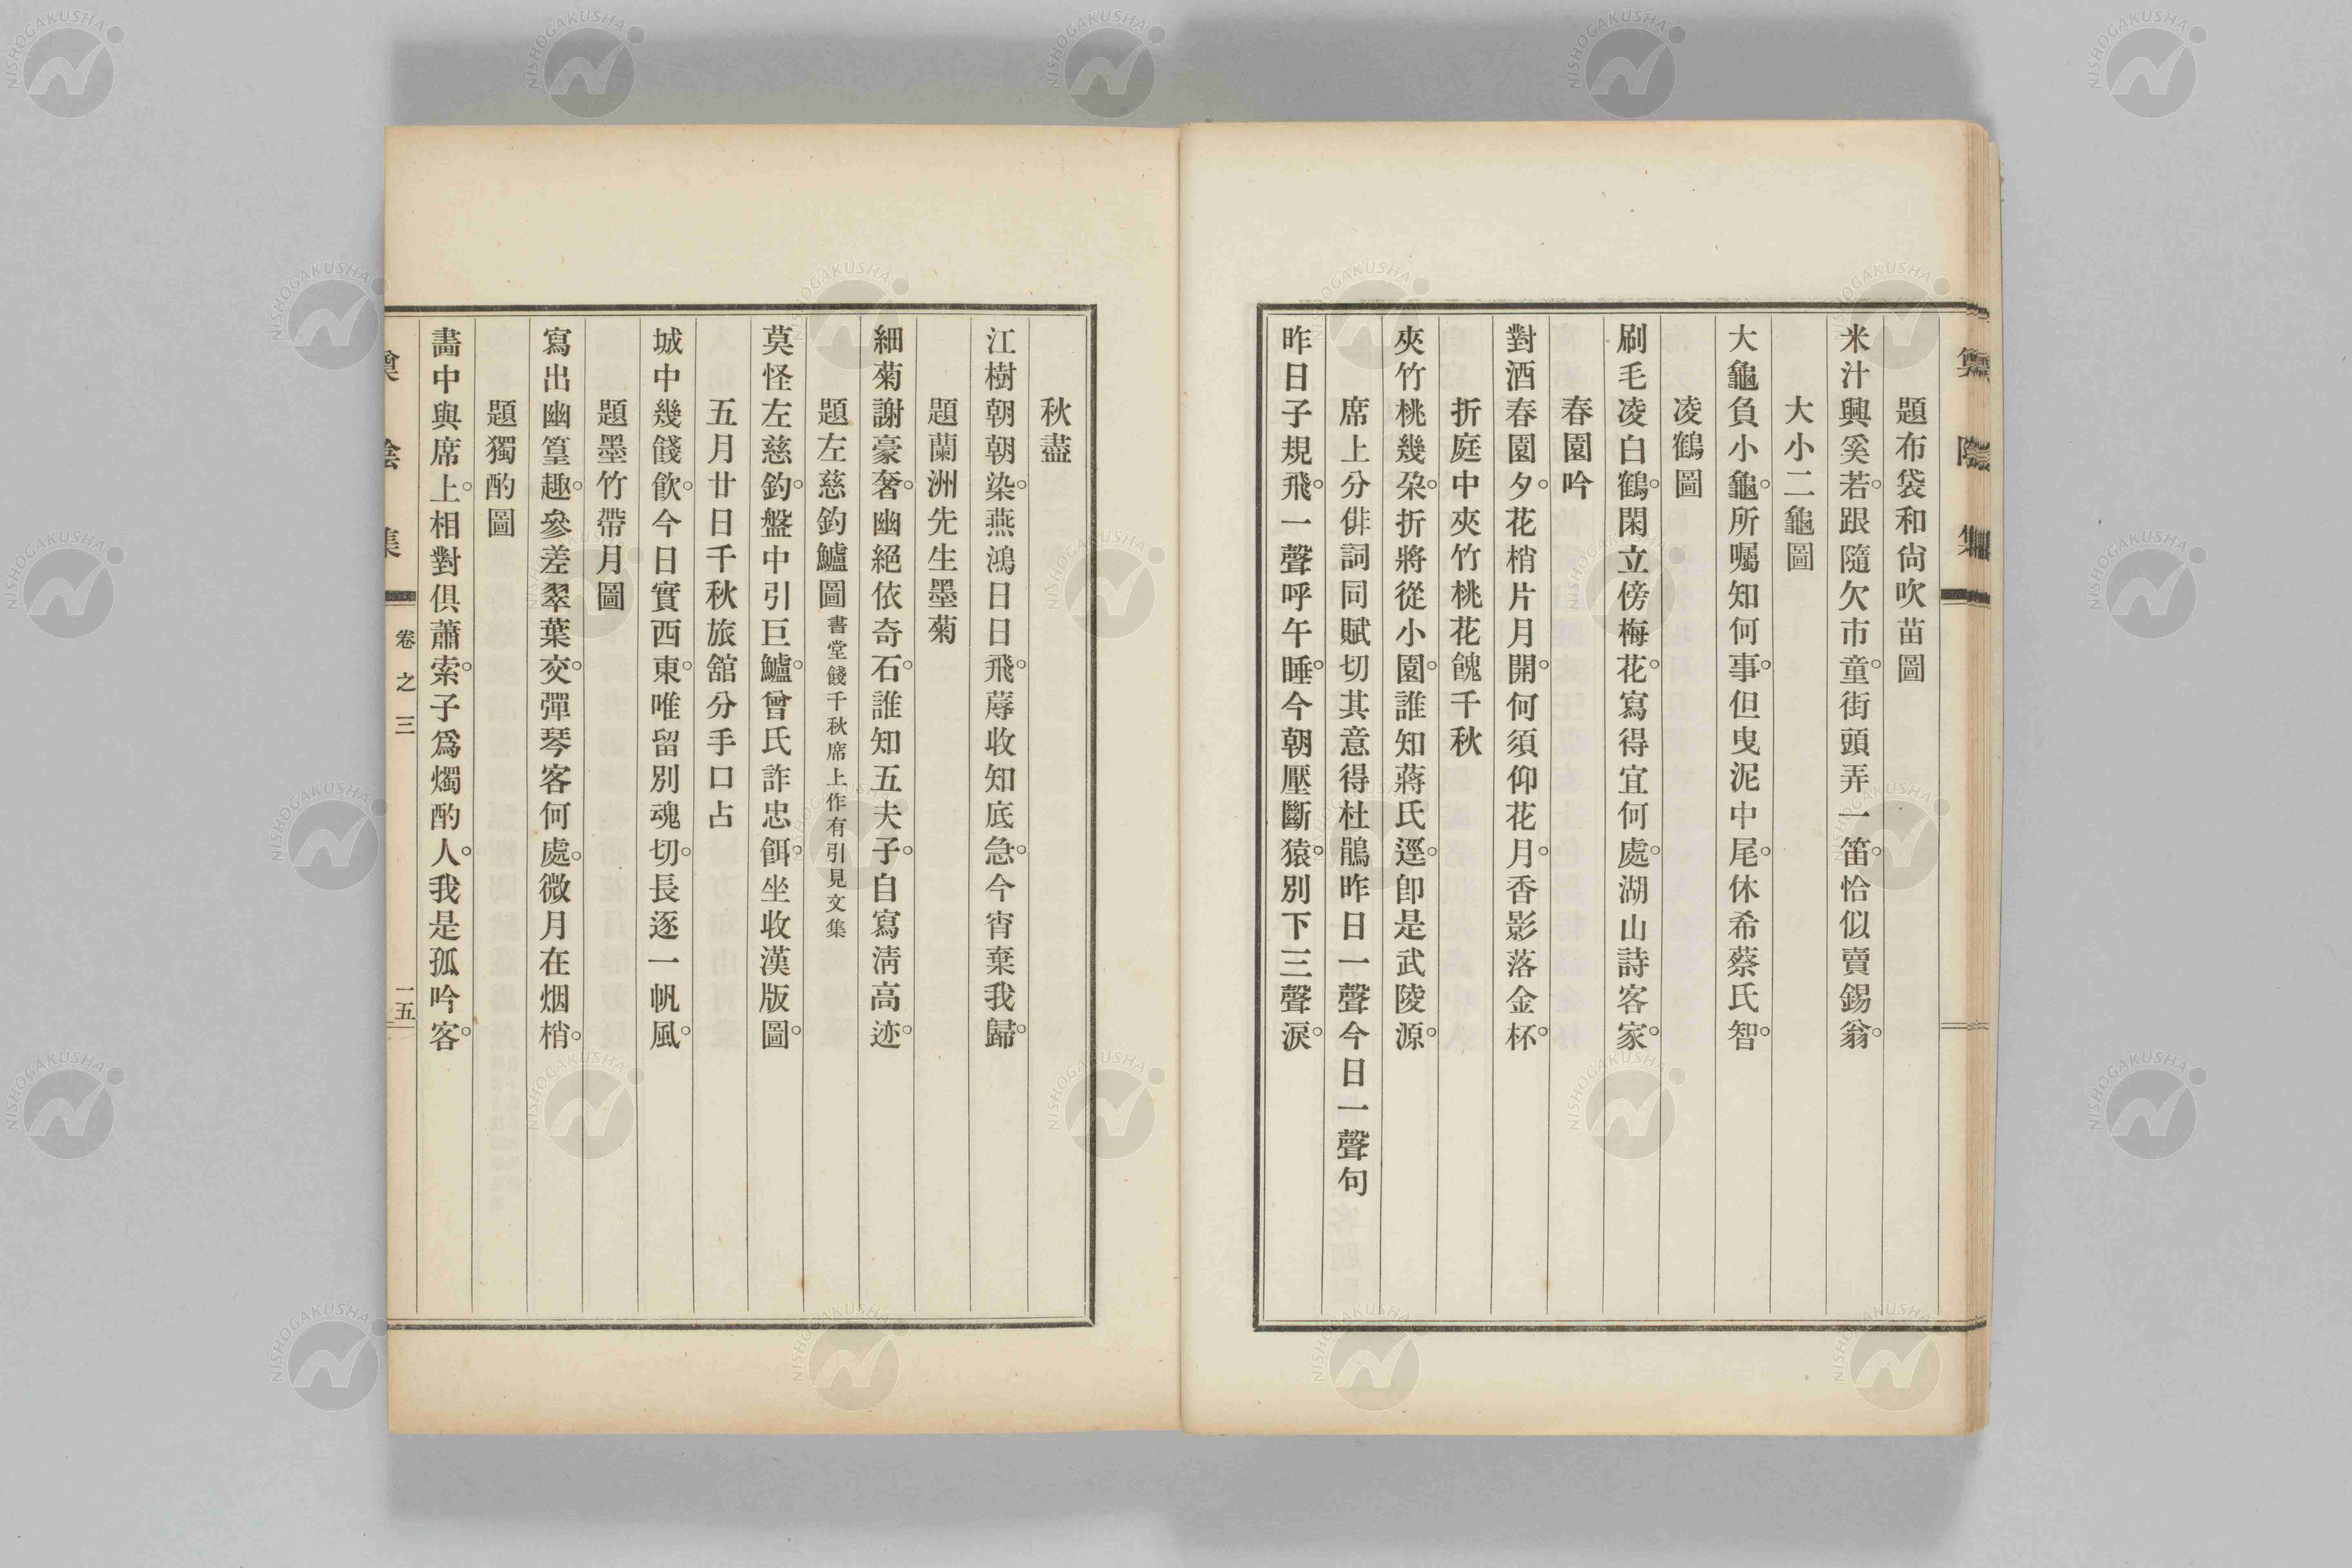 題布袋和尙吹苗圖
米汁興奚若。跟隨欠市童。街頭弄一笛。恰似賣錫翁。
大小二龜圖
大龜負小龜。所囑知何事。但曳泥中尾。休希蔡氏智。
凌鶴圖
刷毛凌白鶴。閑立傍梅花。寫得宜何處。湖山詩客家。
春園吟
對酒春園夕。花梢片月開。何須仰花月。香影落金杯。
折庭中夾竹桃花餽千秋
夾竹桃幾朶。折將從小園。誰知蔣氏逕。卽是武陵源。
席上分俳詞同賦切其意得杜鵑昨日一聲今日一聲句
昨日子規飛。一聲呼午睡。今朝壓斷猿。別下三聲淚。
秋盡
江樹朝朝染。燕鴻日日飛。蓐收知底急。今宵棄我歸。
題蘭洲先生墨菊
細菊謝豪奢。幽絕依奇石。誰知五夫子。自寫淸高迹。
題左慈釣鱸圖 書堂餞千秋席上作有引見文集
莫怪左慈釣。盤中引巨鱸。曾氏詐忠餌。坐收漢版圖。
五月廿日千秋旅舘分手口占
城中幾餞飮。今日實西東。唯留別魂切。長逐一帆風。
題墨竹帶月圖
寫出幽篁趣。參差翠葉交。彈琴客何處。微月在烟梢。
題獨酌圖
畵中與席上。相對俱蕭索。子爲燭酌人。我是孤吟客。
陰集 卷之三 一五
NISHOGAKUSHA